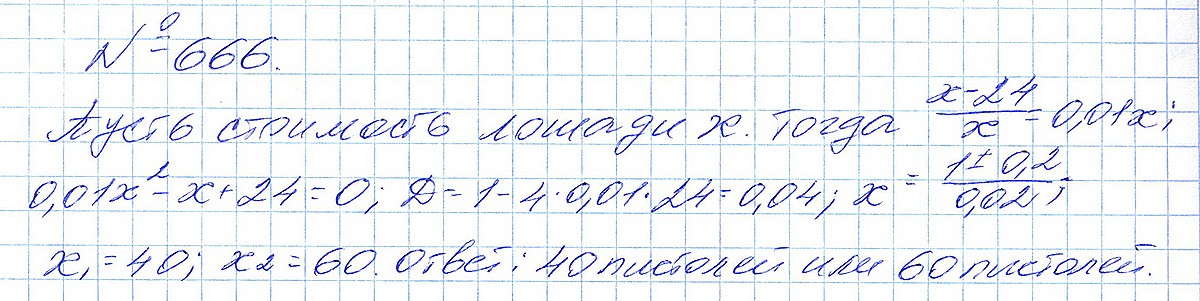 № 666.
Пусть стоимость лошади x. Тогда (x-24)/x = 0,01x;
0,01x² - x + 24 = 0; D = 1 - 4·0,01·24 = 0,04; x = (1 ± 0,2)/0,02;
x₁ = 40; x₂ = 60. Ответ: 40 пистолей или 60 пистолей.